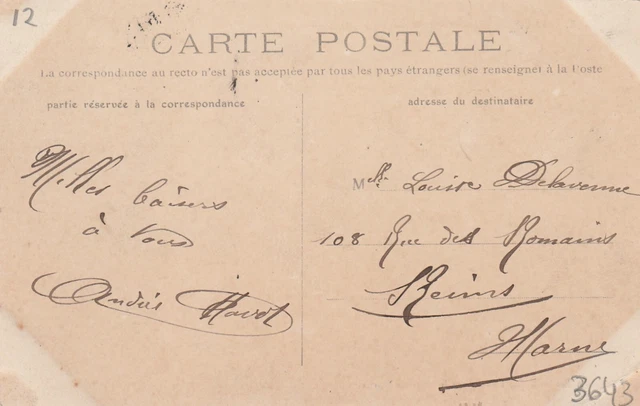 12
CARTE POSTALE
La correspondance au recto n'est pas acceptée par tous les pays étrangers (se renseigner à la Poste
partie réservée à la correspondance
adresse du destinataire
Milles baisers
à vous
André
Mlle Louise Delavenne
108 Rue des Romains
Reims
Marne
3643